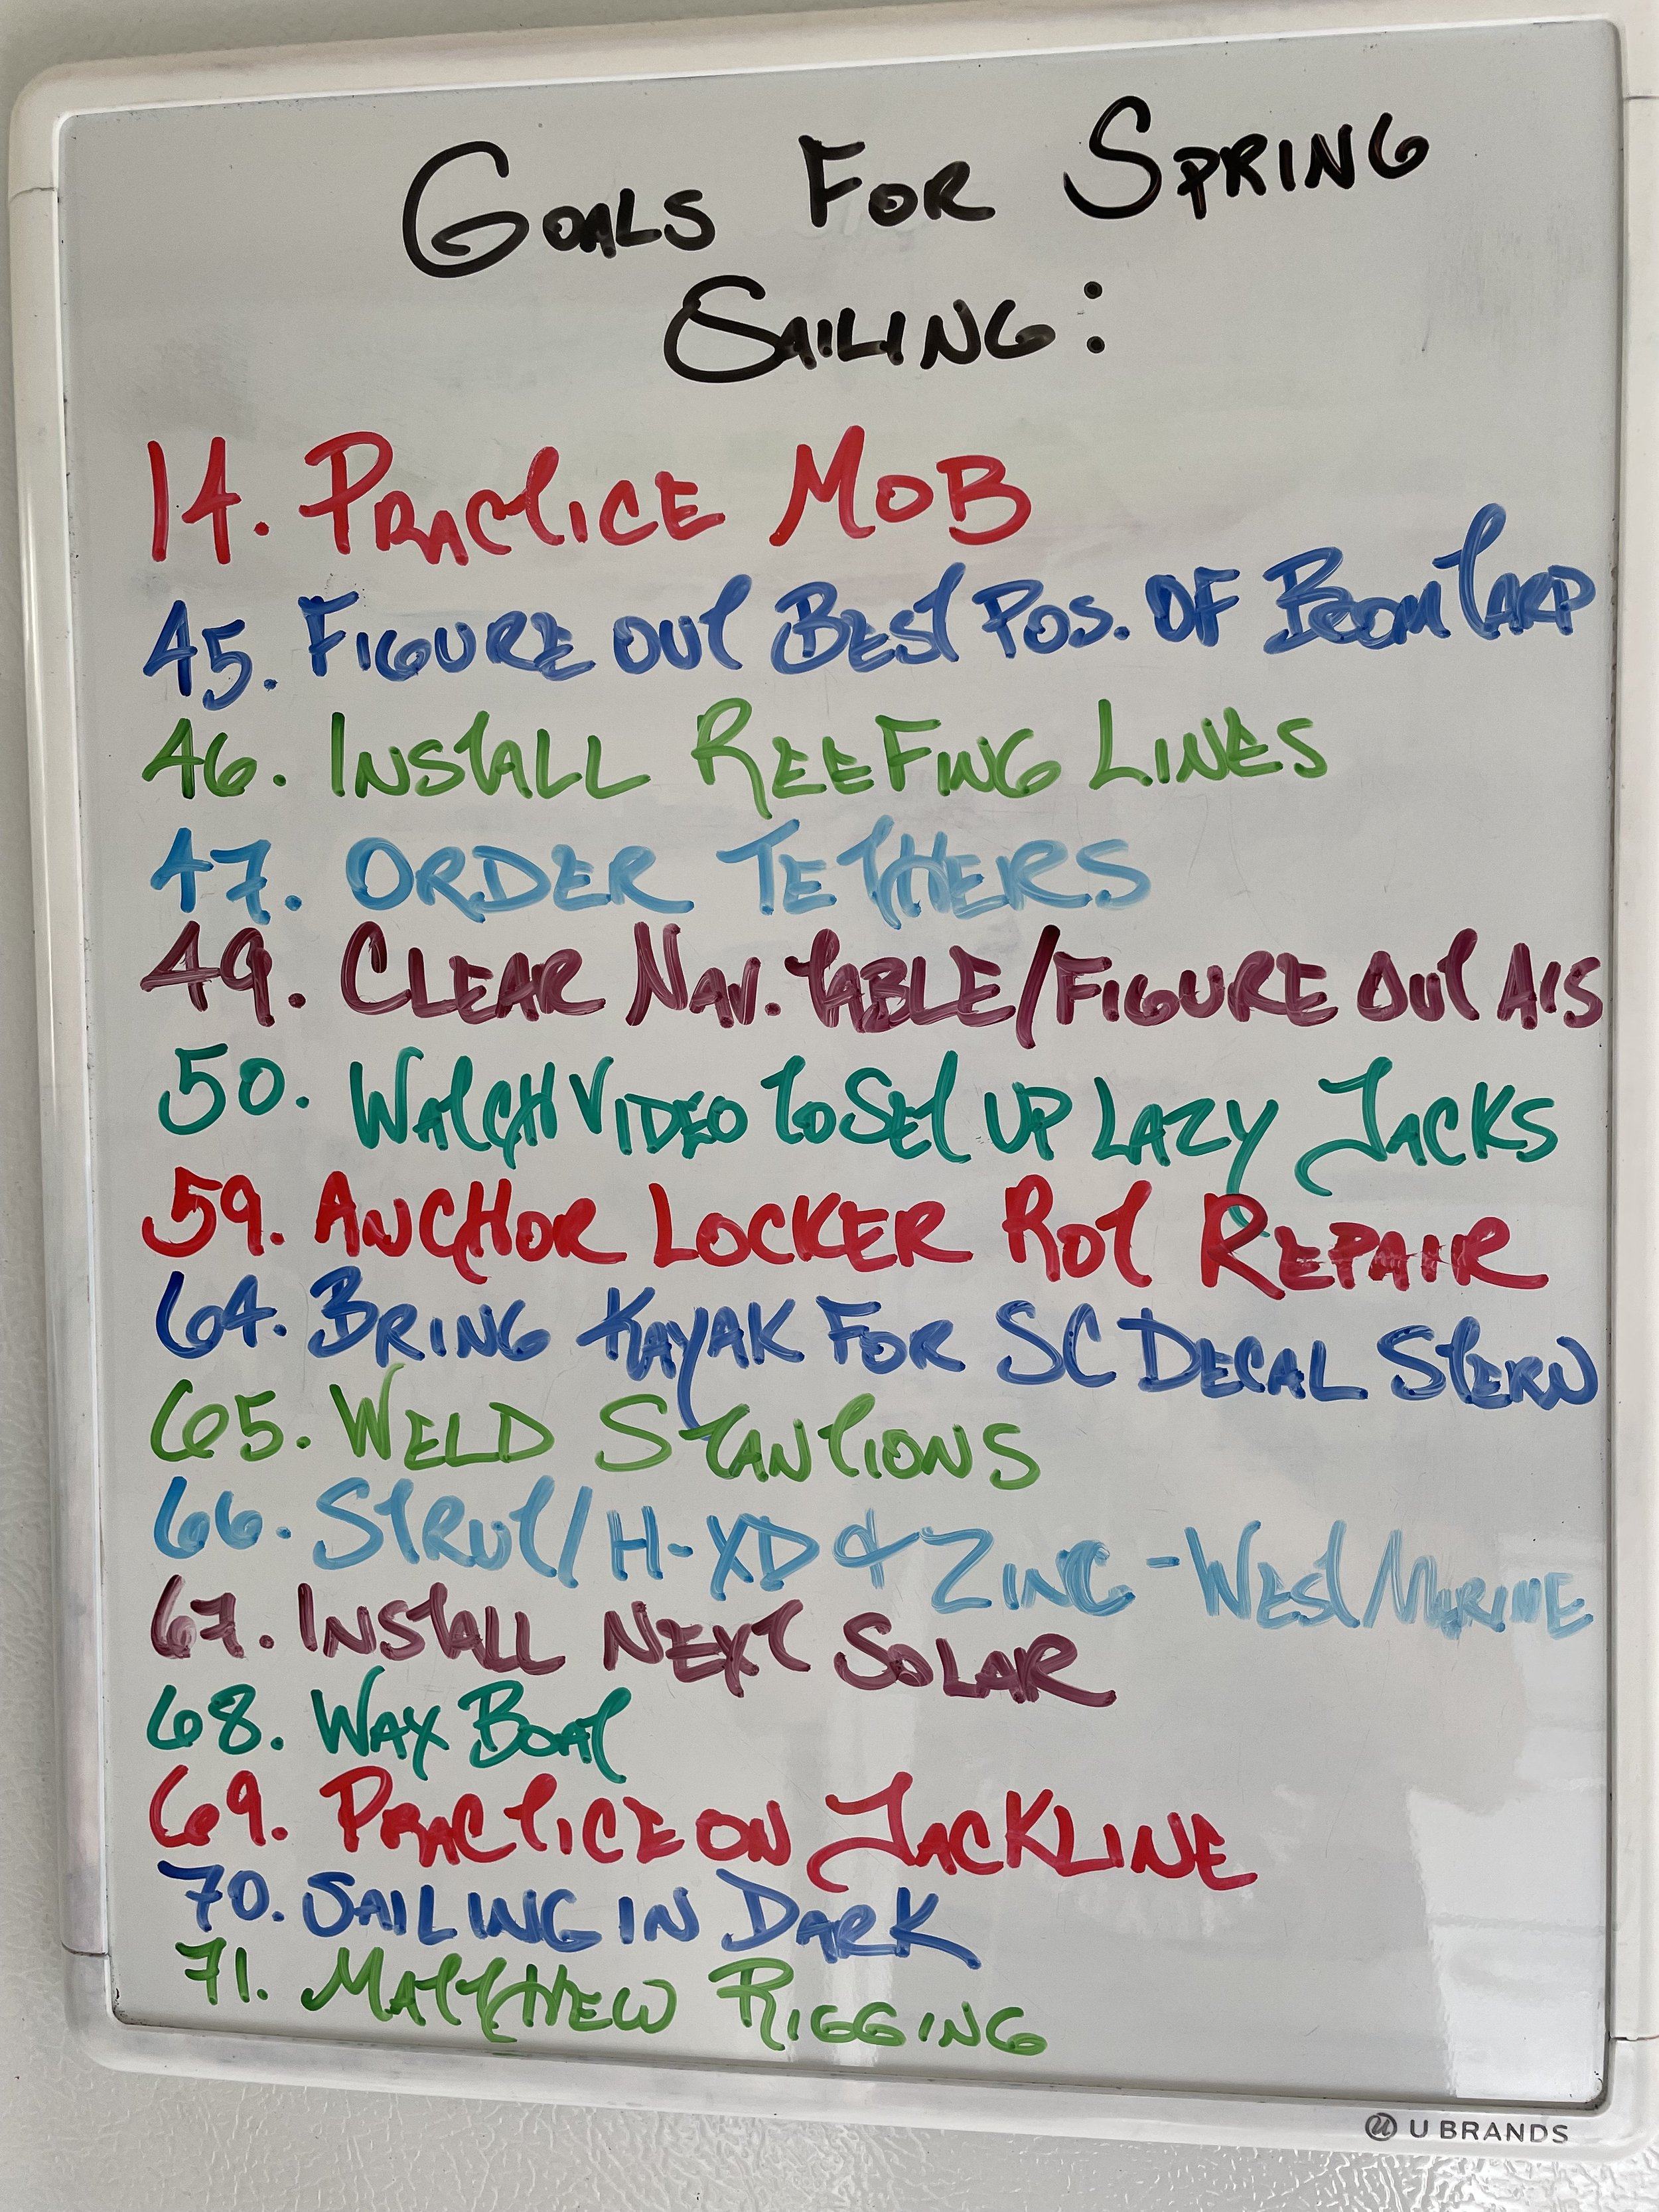 GOALS FOR SPRING
SAILING:
14. PRACTICE MOB
45. FIGURE OUT BEST POS. OF BOOM TARP
46. INSTALL REEFING LINES
47. ORDER TETHERS
49. CLEAR NAV. TABLE/FIGURE OUT AIS
50. WATCH VIDEO TO SET UP LAZY JACKS
59. ANCHOR LOCKER ROT REPAIR
64. BRING KAYAK FOR SC DECAL STERN
65. WELD STANTIONS
66. STRUT/H-XD & ZINC - WEST MARINE
67. INSTALL NEXT SOLAR
68. WAX BOAT
69. PRACTICE ON JACKLINE
70. SAILING IN DARK
71. MATTHEW RIGGING
U BRANDS